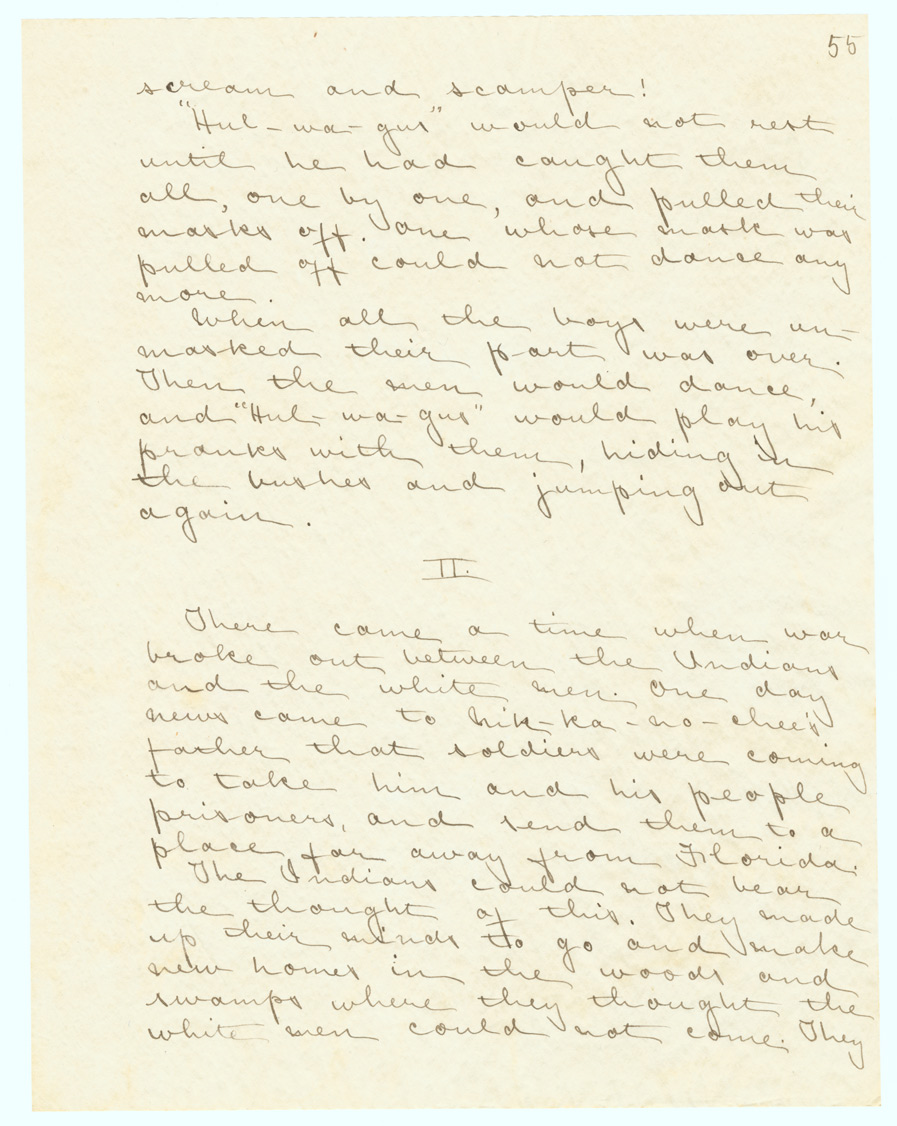 55
scream and scamper!
"Hul-wa-gus" would not rest
until he had caught them
all, one by one, and pulled their
masks off. One whose mask was
pulled off could not dance any
more.
When all the boys were un-
masked their part was over.
Then the men would dance,
and "Hul-wa-gus" would play his
pranks with them, hiding in
the bushes and jumping out
again.
II.
There came a time when war
broke out between the Indians
and the white men. One day
news came to Nik-ka-no-chee's
father that soldiers were coming
to take him and his people
prisoners, and send them to a
place far away from Florida.
The Indians could not bear
the thought of this. They made
up their minds to go and make
new homes in the woods and
swamps where they thought the
white men could not come. They